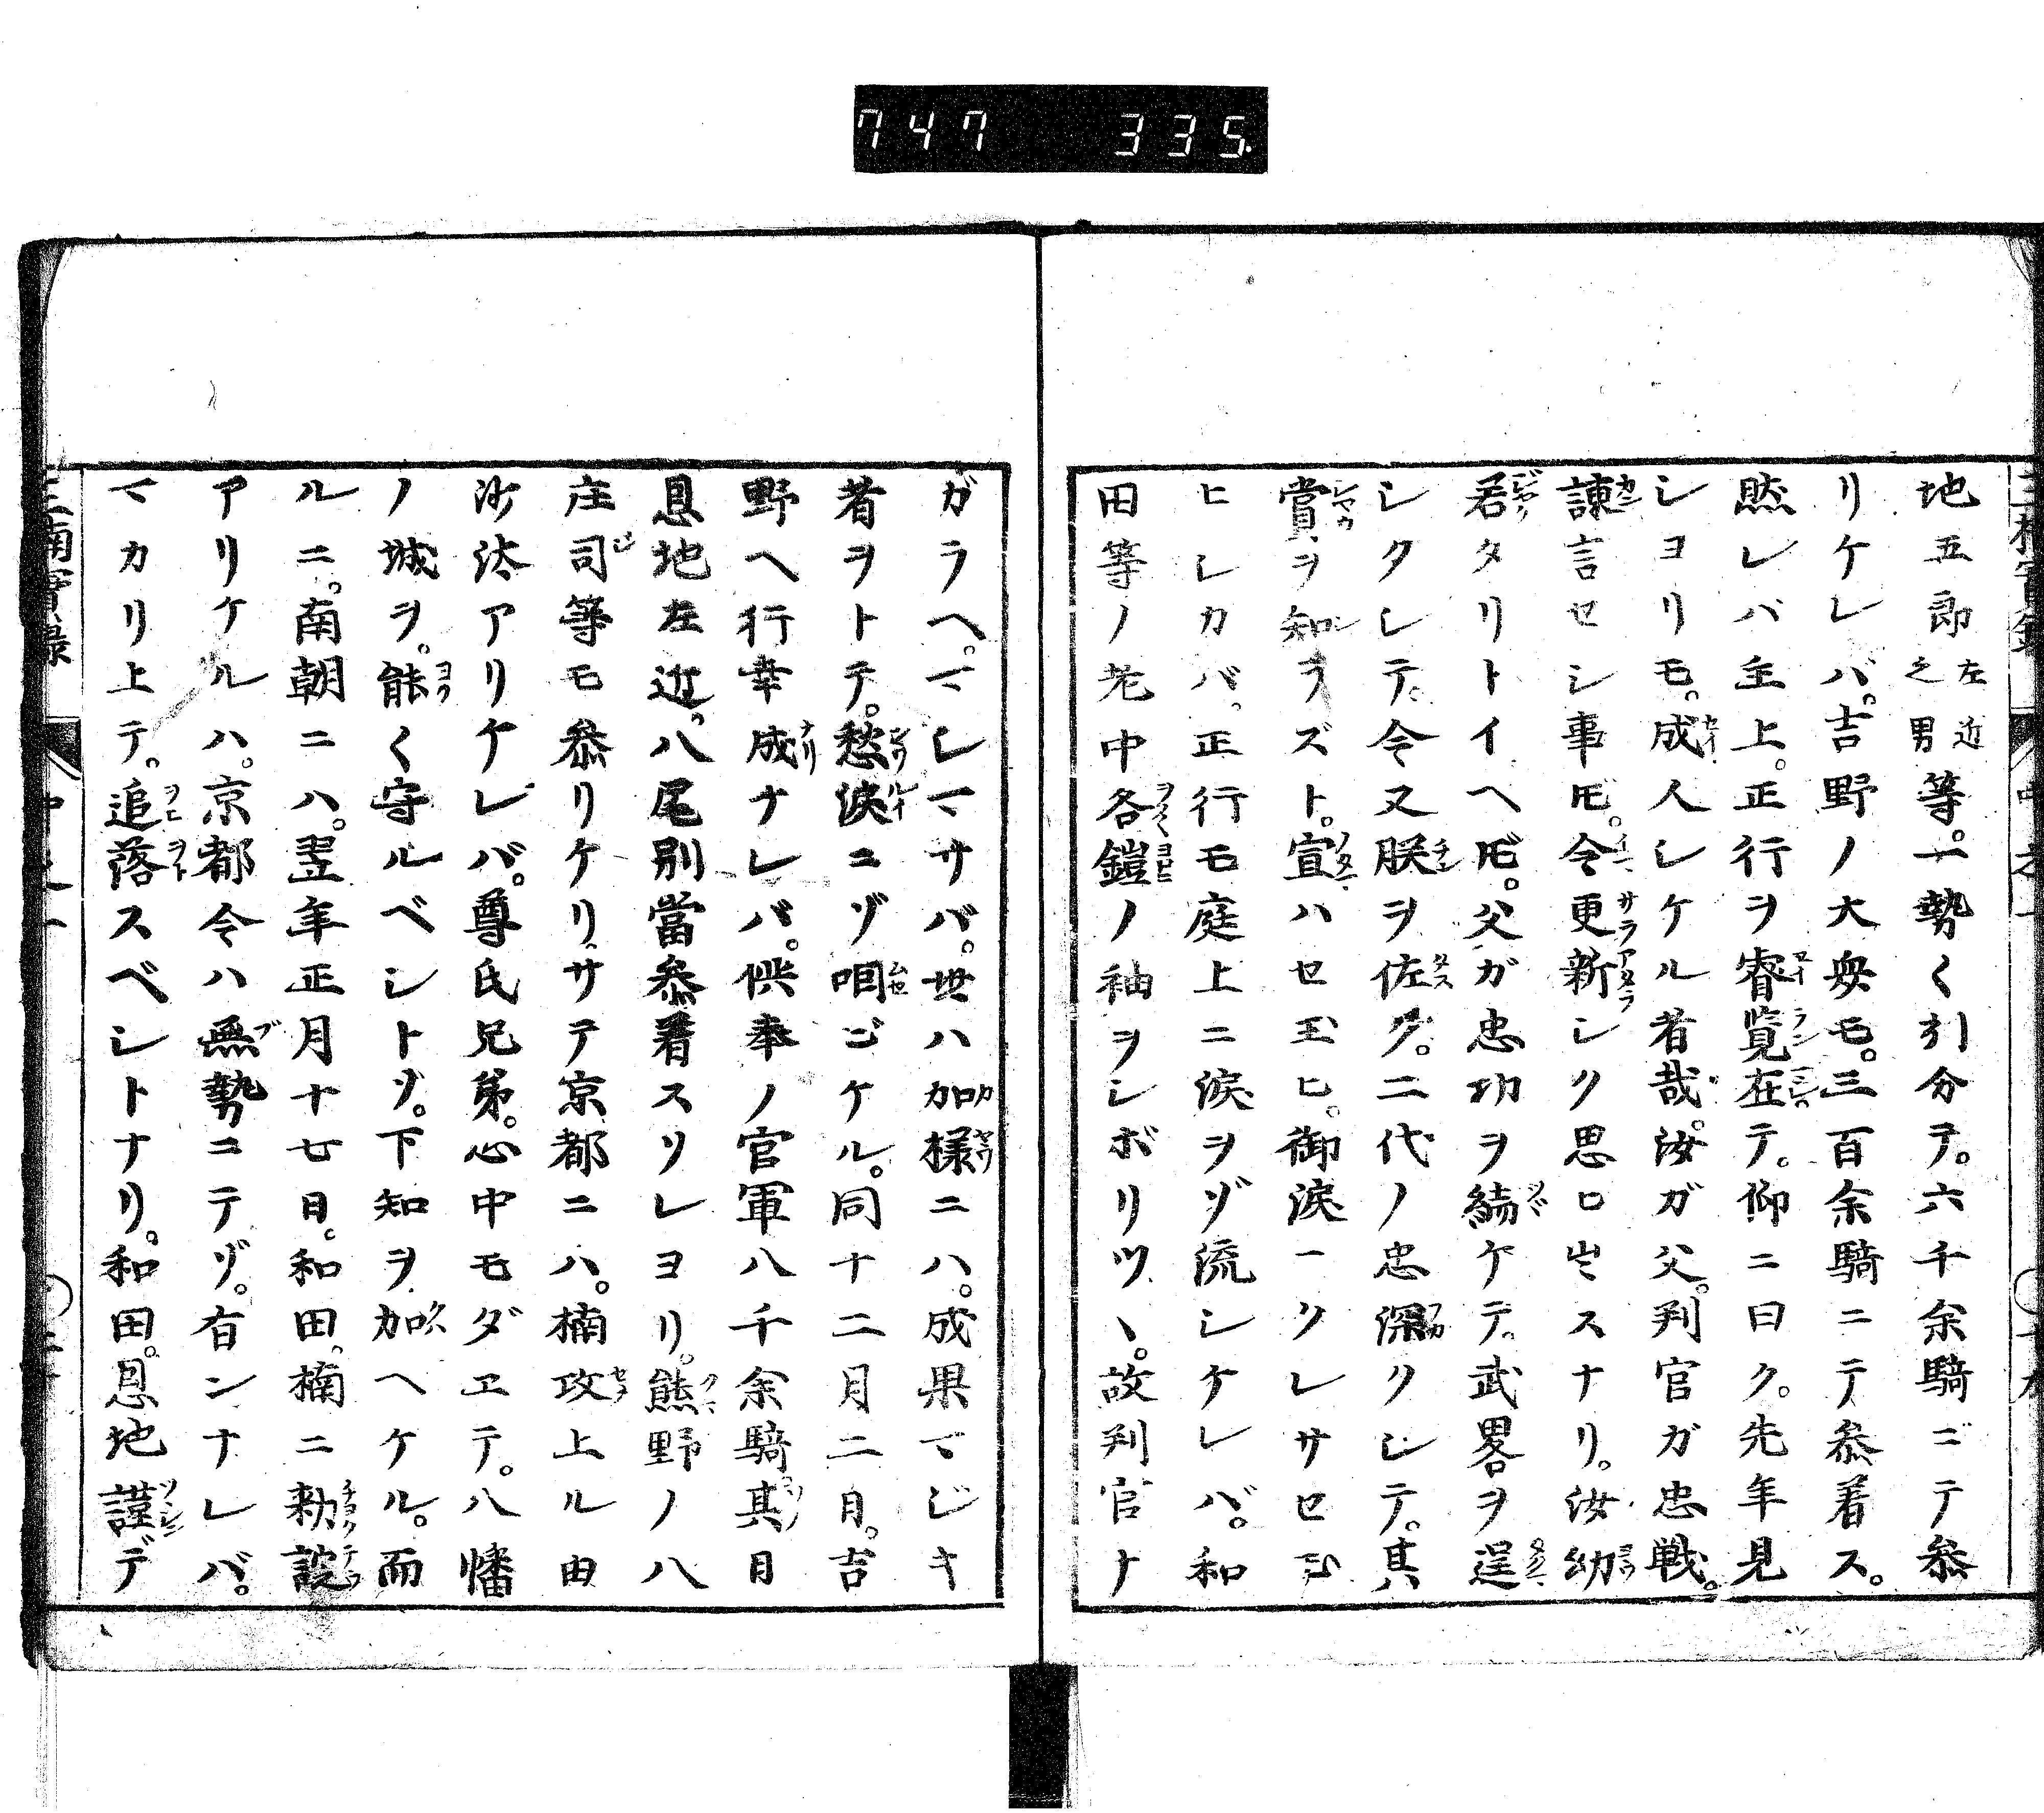 747 335.
地五郎左近之男等。一勢〱引分テ。六千余騎ニテ参
リケレバ。吉野ノ大衆モ。三百余騎ニテ参着ス。
然レバ主上。正行ヲ睿覧在テ。仰ニ曰ク。先年見
シヨリモ。成人シケル者哉。汝ガ父。判官ガ忠戦。
諌言セシ事𪜈。今更新シク思ロ召スナリ。汝幼
若タリトイヘ𪜈。父ガ忠功ヲ続ケテ。武畧ヲ逞
シクシテ。今又朕ヲ佐ク。二代ノ忠深クシテ。其
賞ヲ知ラズト。宣ハセ玉ヒ。御涙一クレサセ玉
ヒシカバ。正行モ庭上ニ涙ヲゾ流シケレバ。和
田等ノ老中各鎧ノ袖ヲシボリツヽ。故判官ナ
ガラヘ。マシマサバ。世ハ加様ニハ。成果マジキ
者ヲトテ。愁涙ニゾ咽ビケル。同十二月二日。吉
野ヘ行幸成ナレバ。供奉ノ官軍八千余騎其日
恩地左近。八尾別當参着スリレヨリ。熊野ノ八
庄司等モ参リケリ。サテ京都ニハ。楠攻上ル由
沙汰アリケレバ。尊氏兄弟。心中モダヱテ。八幡
ノ城ヲ。能〱守ルベシトゾ。下知ヲ加ヘケル。而
ルニ。南朝ニハ。翌年正月十七日。和田。楠ニ勅諚
アリケルハ。京都今ハ無勢ニテゾ。有ンナレバ。
マカリ上テ。追落スベシトナリ。和田。恩地謹デ